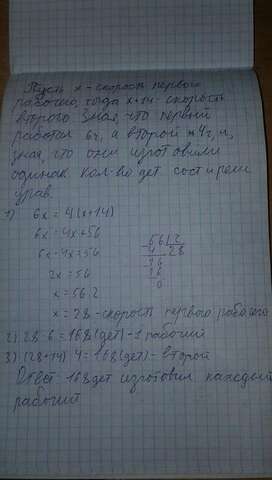 Пусть x - скорость первого
рабочего, тогда x+14 скорость
второго. Зная, что первый
работал 6ч, а второй 4ч, и,
зная, что они изготовили
одинак кол-во дет. сост и реш
урав.
1) 6x = 4(x+14)
6x = 4x+56
6x-4x=56
2x = 56
x = 56:2
x = 28 - скорость первого рабочего
56 2
4 28
16
16
0
2) 28·6=168(дет)-1 рабочий
3) (28+14)·4=168(дет)-второй
Ответ: 168 дет изготовил каждый
рабочий